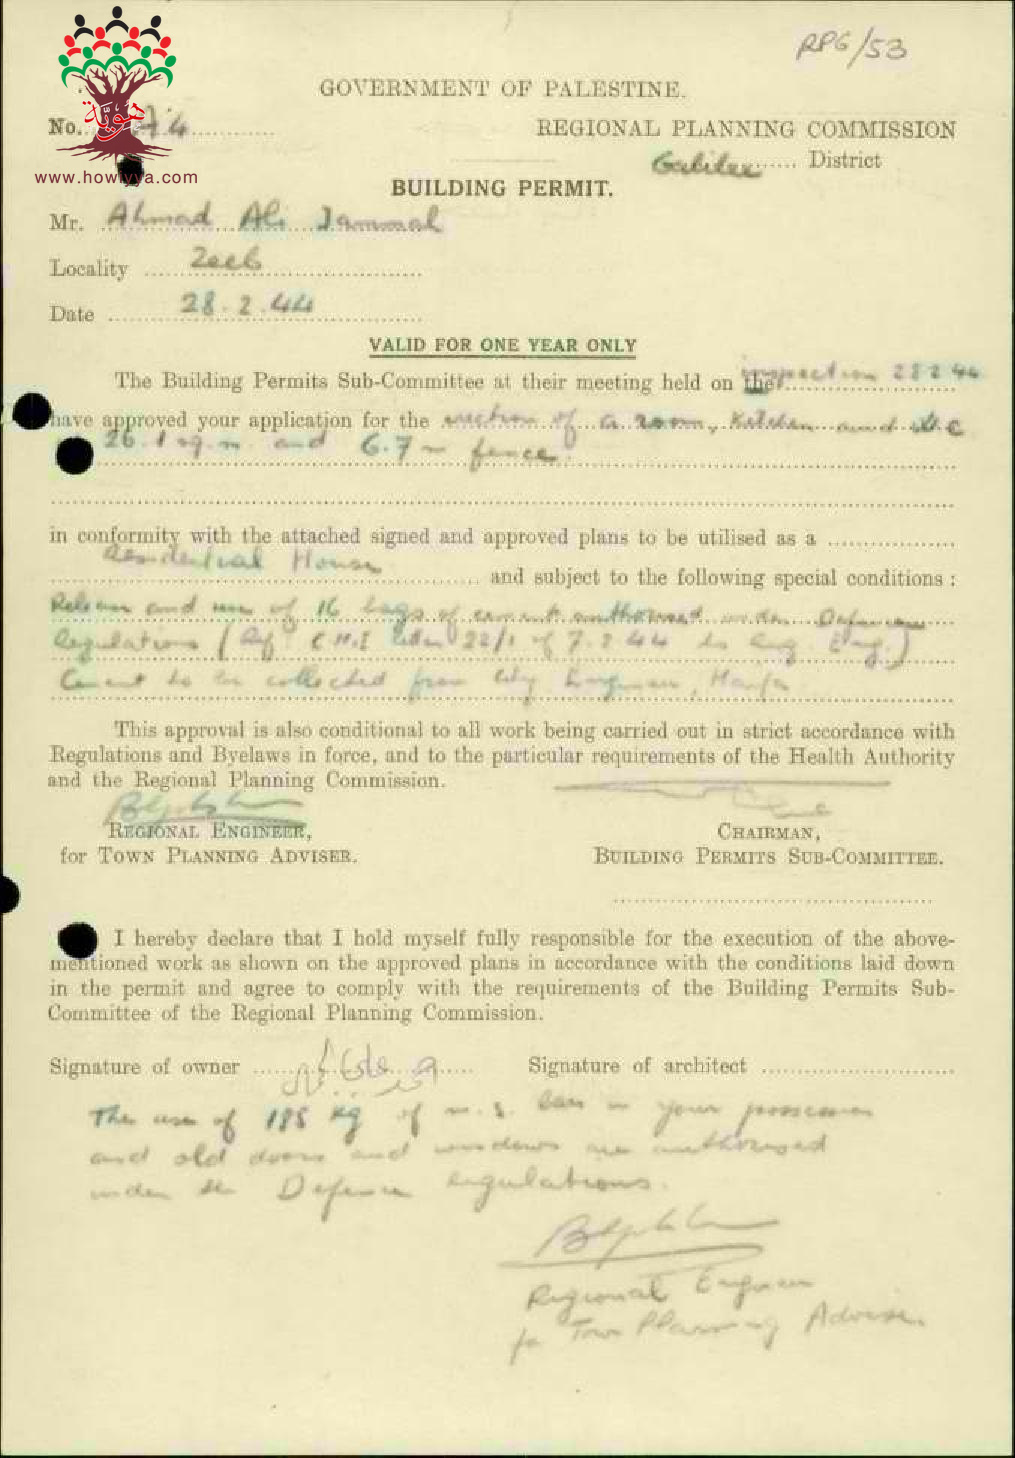 RPG/53
GOVERNMENT OF PALESTINE.
No. A/4
REGIONAL PLANNING COMMISSION
هويّة
Galilee District
www.howiyya.com
BUILDING PERMIT.
Mr. Ahmad Ali Jammal
Locality Zeeb
Date 28.2.44
VALID FOR ONE YEAR ONLY
The Building Permits Sub-Committee at their meeting held on the inspection 28 2 44
have approved your application for the erection of a room, Kitchen and W.C
26.1 sq.m and 6.7 m fence.
in conformity with the attached signed and approved plans to be utilised as a
Residential House and subject to the following special conditions :
Release and use of 16 bags of cement authorised under Defence
Regulations ( Ref letter 22/1 of 7.2 44 to Eng.)
Cement to be collected from City Engineer, Haifa
This approval is also conditional to all work being carried out in strict accordance with
Regulations and Byelaws in force, and to the particular requirements of the Health Authority
and the Regional Planning Commission.
REGIONAL ENGINEER,
for TOWN PLANNING ADVISER.
CHAIRMAN,
BUILDING PERMITS SUB-COMMITTEE.
I hereby declare that I hold myself fully responsible for the execution of the above-
mentioned work as shown on the approved plans in accordance with the conditions laid down
in the permit and agree to comply with the requirements of the Building Permits Sub-
Committee of the Regional Planning Commission.
Signature of owner احمد علي جمال Signature of architect
The use of 185 kg of m.s. bars in your possession
and old doors and windows are authorised
under the Defence Regulations.
Regional Engineer
for Town Planning Adviser.